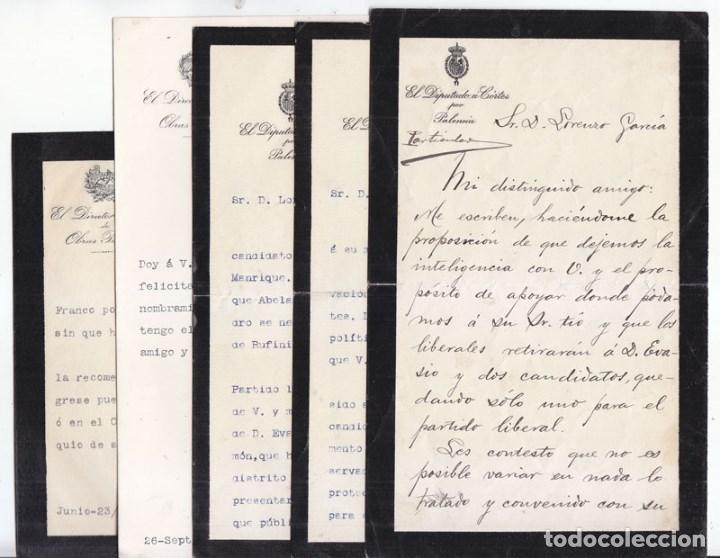 El Director
de
Obras Pú
Franco po
sin que h
la recome
grese pue
ó en el C
quio de s
Junio-23/
El Direc
Obras
Doy á V.
felicita
nombrami
tengo el
amigo y
26-Sept
El Diputado
por
Palen
Sr. D. Lo
candidato
Manrique.
que Abela
dro se ne
de Rufini
Partido l
de V. y m
de D. Eva
món, que h
distrito
presentar
que públi
El D
Sr. D.
á su m
vacio
tes. I
políti
que V.
sido
candid
mento
servad
protec
para
El Diputado a Córtes
por
Palencia
Sr. D. Lorenzo García
Particular
Mi distinguido amigo:
Me escriben, haciéndome la
proposición de que dejemos la
inteligencia con V. y el pro-
pósito de apoyar donde poda-
mos á su Sr. tío y que los
liberales retirarán á D. Eva-
sio y dos candidatos, que-
dando sólo uno para el
partido liberal.
Les contesto que no es
posible variar en nada lo
tratado y convenido con su
todocoleccion.net